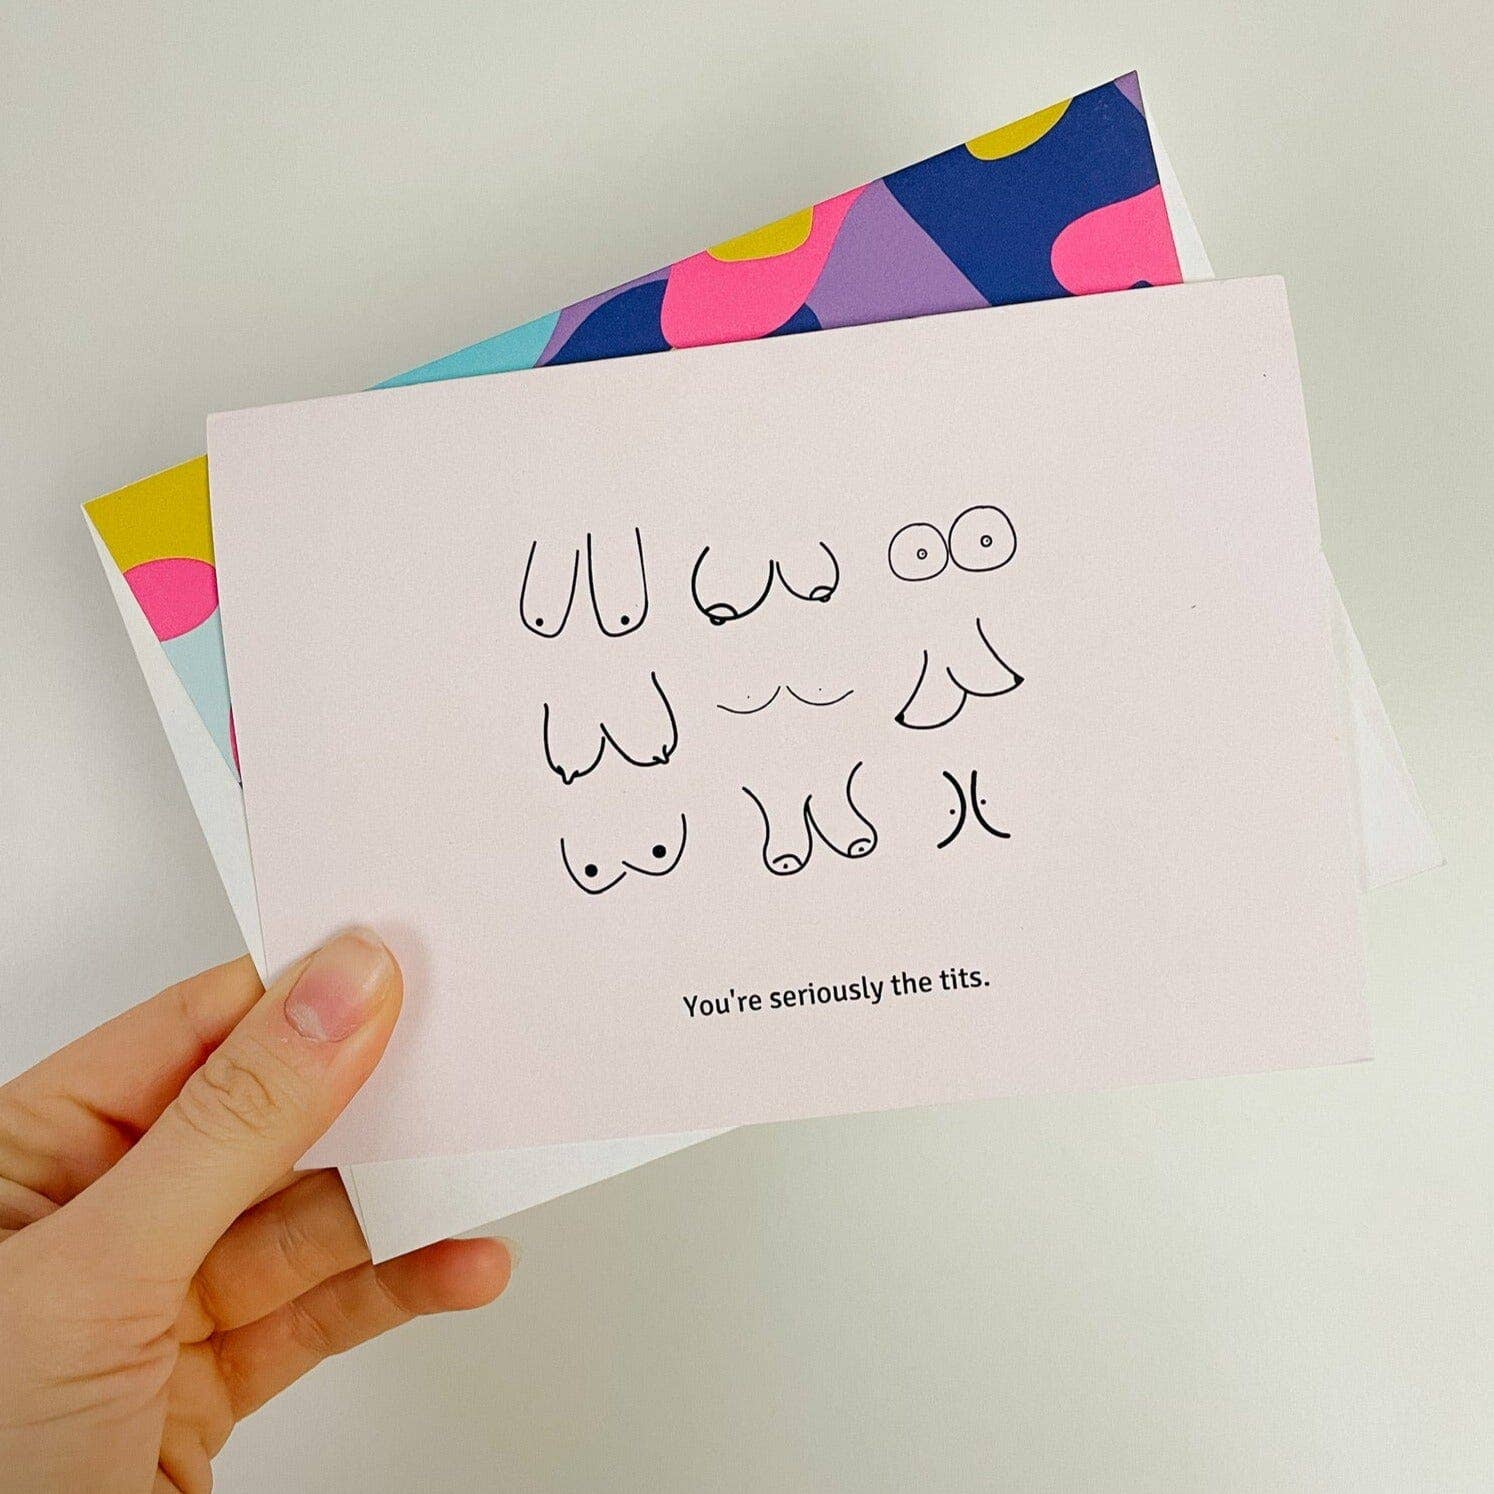 You're seriously the tits.